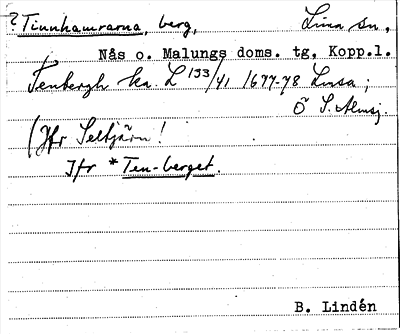 ? Tinnhamrarna, berg, Lima sn,
Nås o. Malungs doms. tg, Kopp.l.
Tenbergh ka. L 133/41 1677-78 Lusa;
Ö S. Almsj.
(Jfr Seltjärn!
Jfr *Ten-berget.
B. Lindén